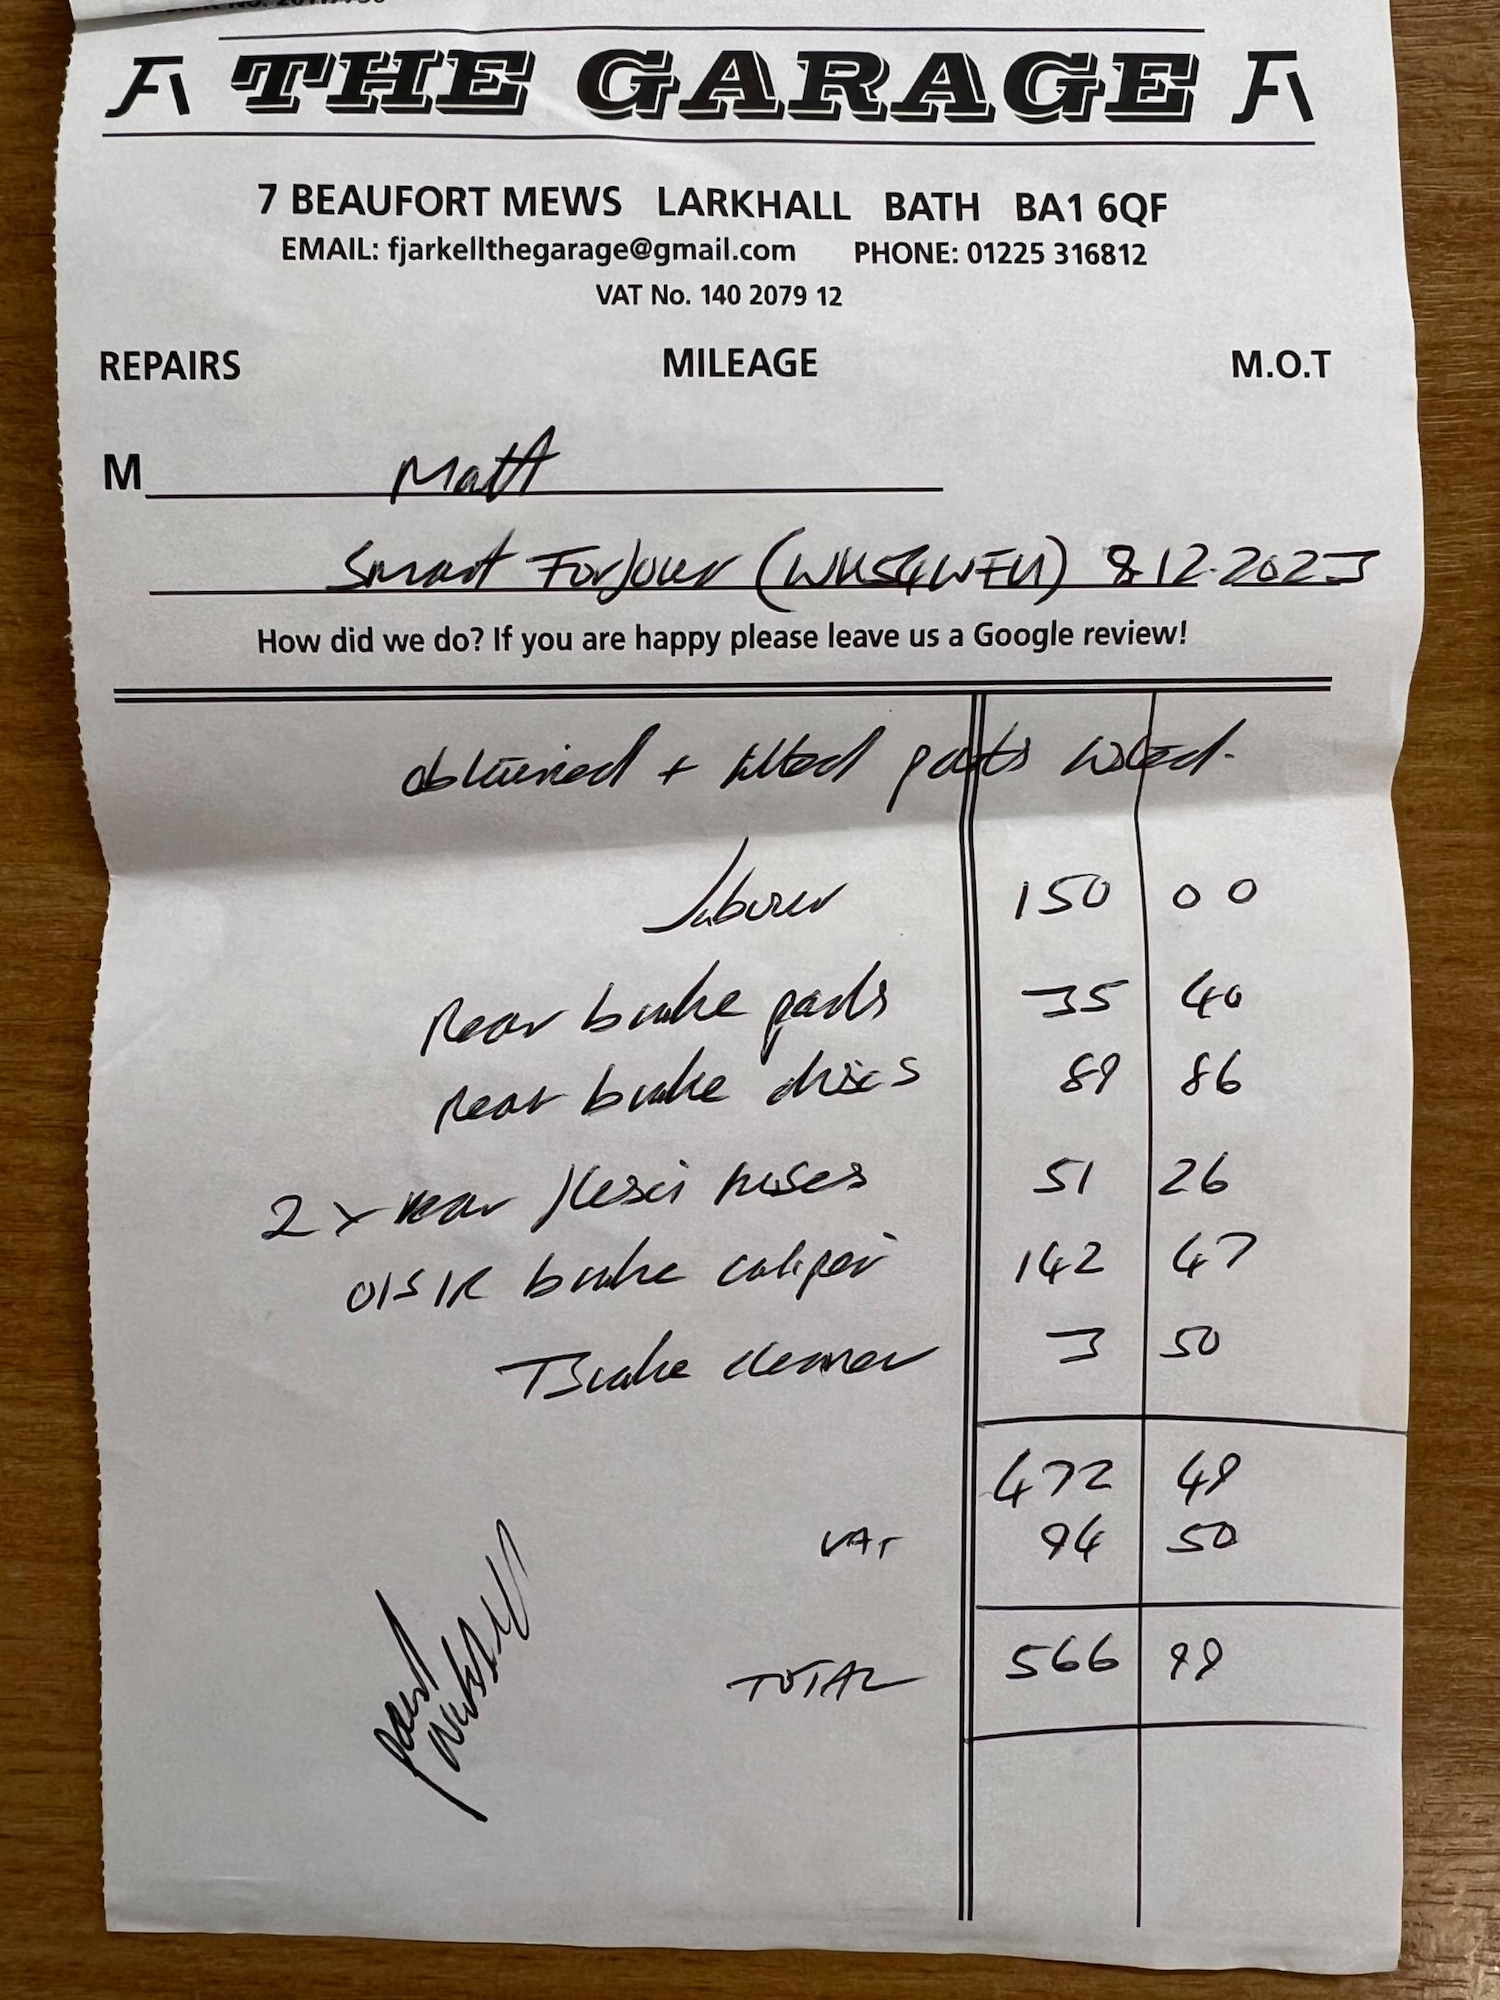 THE GARAGE
7 BEAUFORT MEWS LARKHALL BATH BA1 6QF
EMAIL: fjarkellthegarage@gmail.com PHONE: 01225 316812
VAT No. 140 2079 12
REPAIRS MILEAGE M.O.T
M Matt
Smart Forfour 8.12.2023
How did we do? If you are happy please leave us a Google review!
obtained + fitted parts listed.
labour 150 00
Rear brake pads 35 40
Rear brake discs 89 86
2 x rear flexi hoses 51 26
O/S/R brake caliper 142 47
Brake cleaner 3 50
472 49
VAT 94 50
TOTAL 566 99
paid